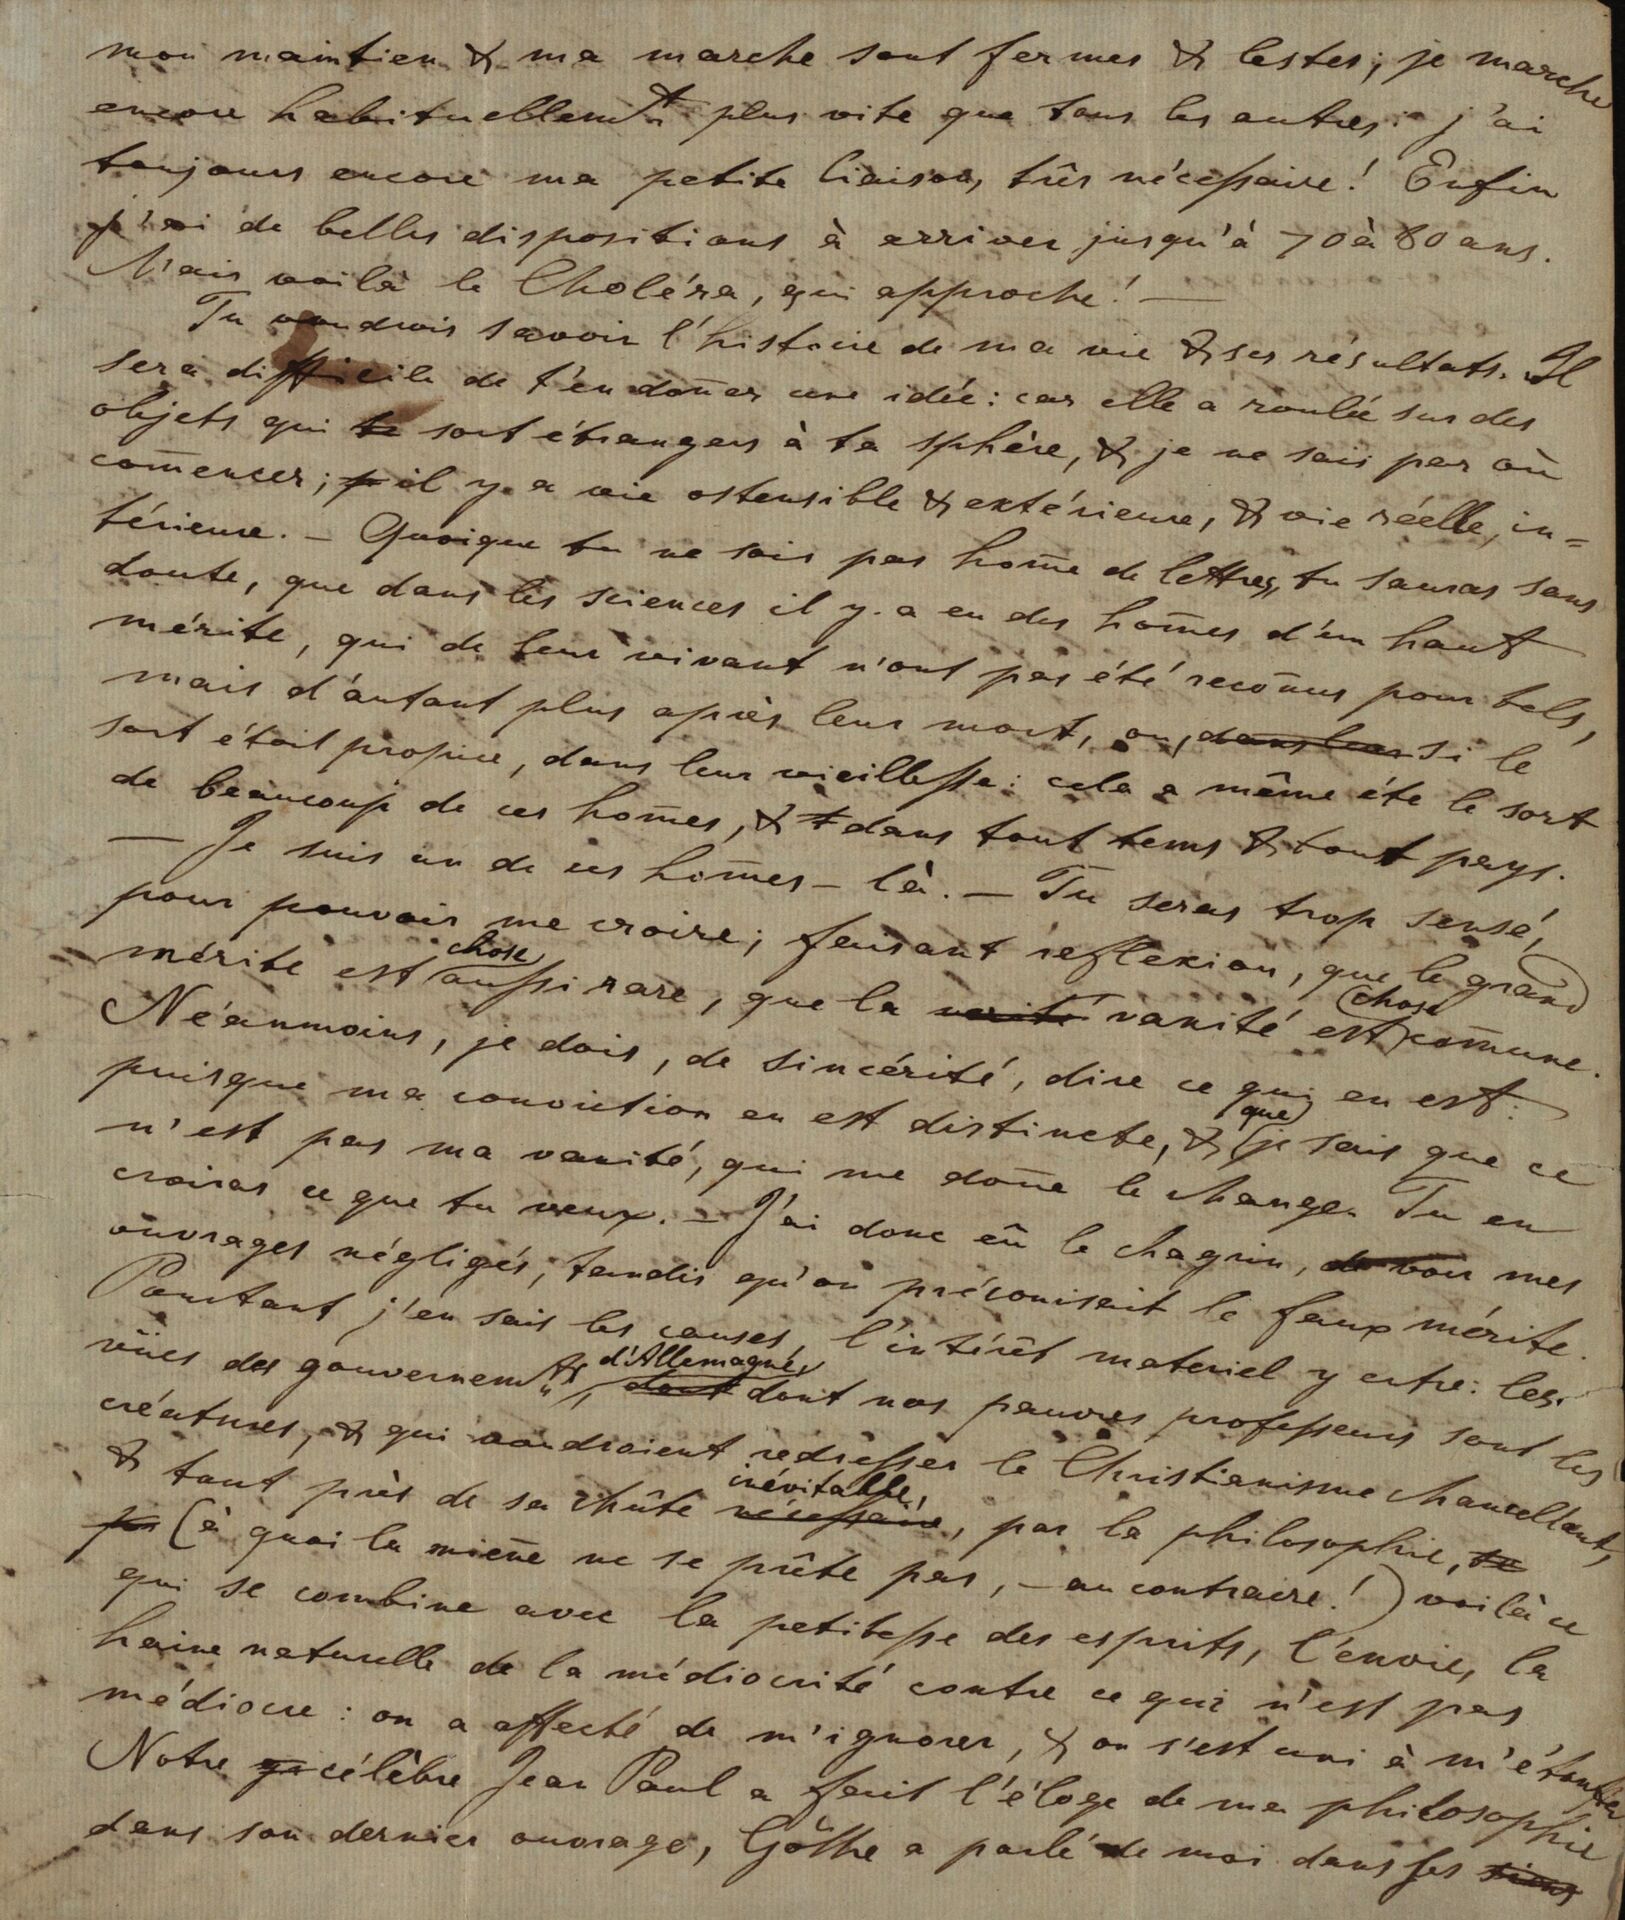 mon maintien & ma marche sont fermes & lestes; je marche
encore habituellemt plus vite que tous les autres: j'ai
toujours encore ma petite liaison, très nécessaire! Enfin
j'ai de belles dispositions à arriver jusqu'à 70 à 80 ans.
Mais voilà le Choléra, qui approche! —
Tu voudrois savoir l'histoire de ma vie & ses résultats. Il
sera difficile de t'en doñer une idée: car elle a roulée sur des
objets qui te sont étrangers à ta sphère, & je ne sais par où
com̄encer; il y a vie ostensible & extérieure, & vie réelle, in=
térieure. — Quoique tu ne sois pas hom̄e de lettres, tu sauras sans
doute, que dans les sciences il y a eu des hom̄es d'un haut
mérite, qui de leur vivant n'ont pas été reconñus pour tels,
mais d'autant plus après leur mort, ou, dans leur si le
sort étoit propice, dans leur vieillesse: cela a même été le sort
de beaucoup de ces hom̄es, & t dans tout tems & tout pays.
— Je suis un de ces hom̄es-là. — Tu seras trop sensé,
pour pouvoir me croire; faisant reflexion, que le grand
mérite est chose aussi rare, que la verité vanité est chose com̄une.
Néanmoins, je dois, de sincérité, dire ce qui en est:
puisque ma conviction en est distincte, & que je sais que ce
n'est pas ma vanité, qui me doñe le change. Tu en
croiras ce que tu veux. — J'ai donc eû le chagrin, de voir mes
ouvrages négligés, tandis qu'on préconisait le faux mérite.
Pourtant j'en sais les causes, l'intérêt materiel y entre: les
vües des gouvernemts d'Allemagne, dont dont nos pauvres professeurs sont les
créatures, & qui voudraient redresser le Christianisme chancellant,
& tout près de sa chûte nécessaire inévitable, par la philosophie,
(à quoi la mieñe ne se prête pas, — au contraire!) voilà ce
qui se combine avec la petitesse des esprits, l'envie, la
haine naturelle de la médiocrité contre ce qui n'est pas
médiocre: on a affecté de m'ignorer, & on s'est uni à m'étouffer
Notre célèbre Jean Paul a fait l'éloge de ma philosophie
dans son dernier ouvrage, Göthe a parlé de moi dans ses